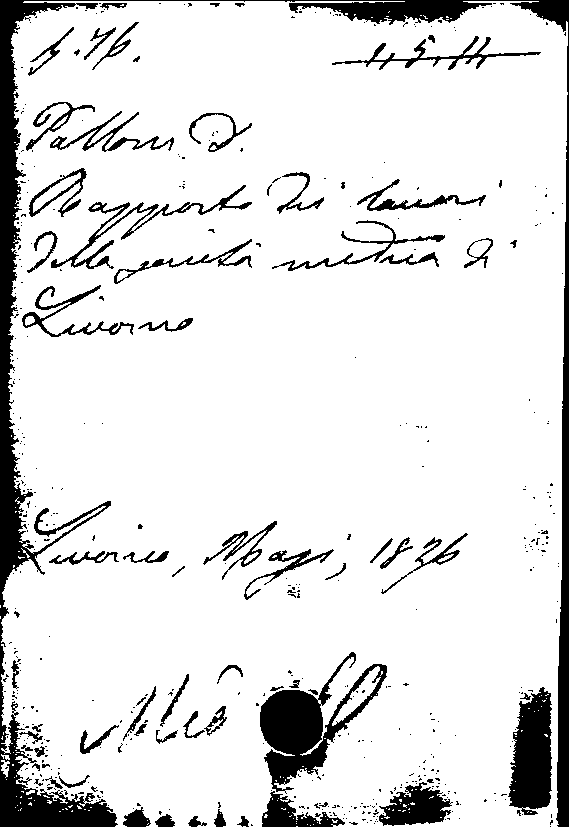 5.76. 1.5.14
Palloni D.
Rapporto dei lavori
della società medica di
Livorno
Livorno, Magi, 1826